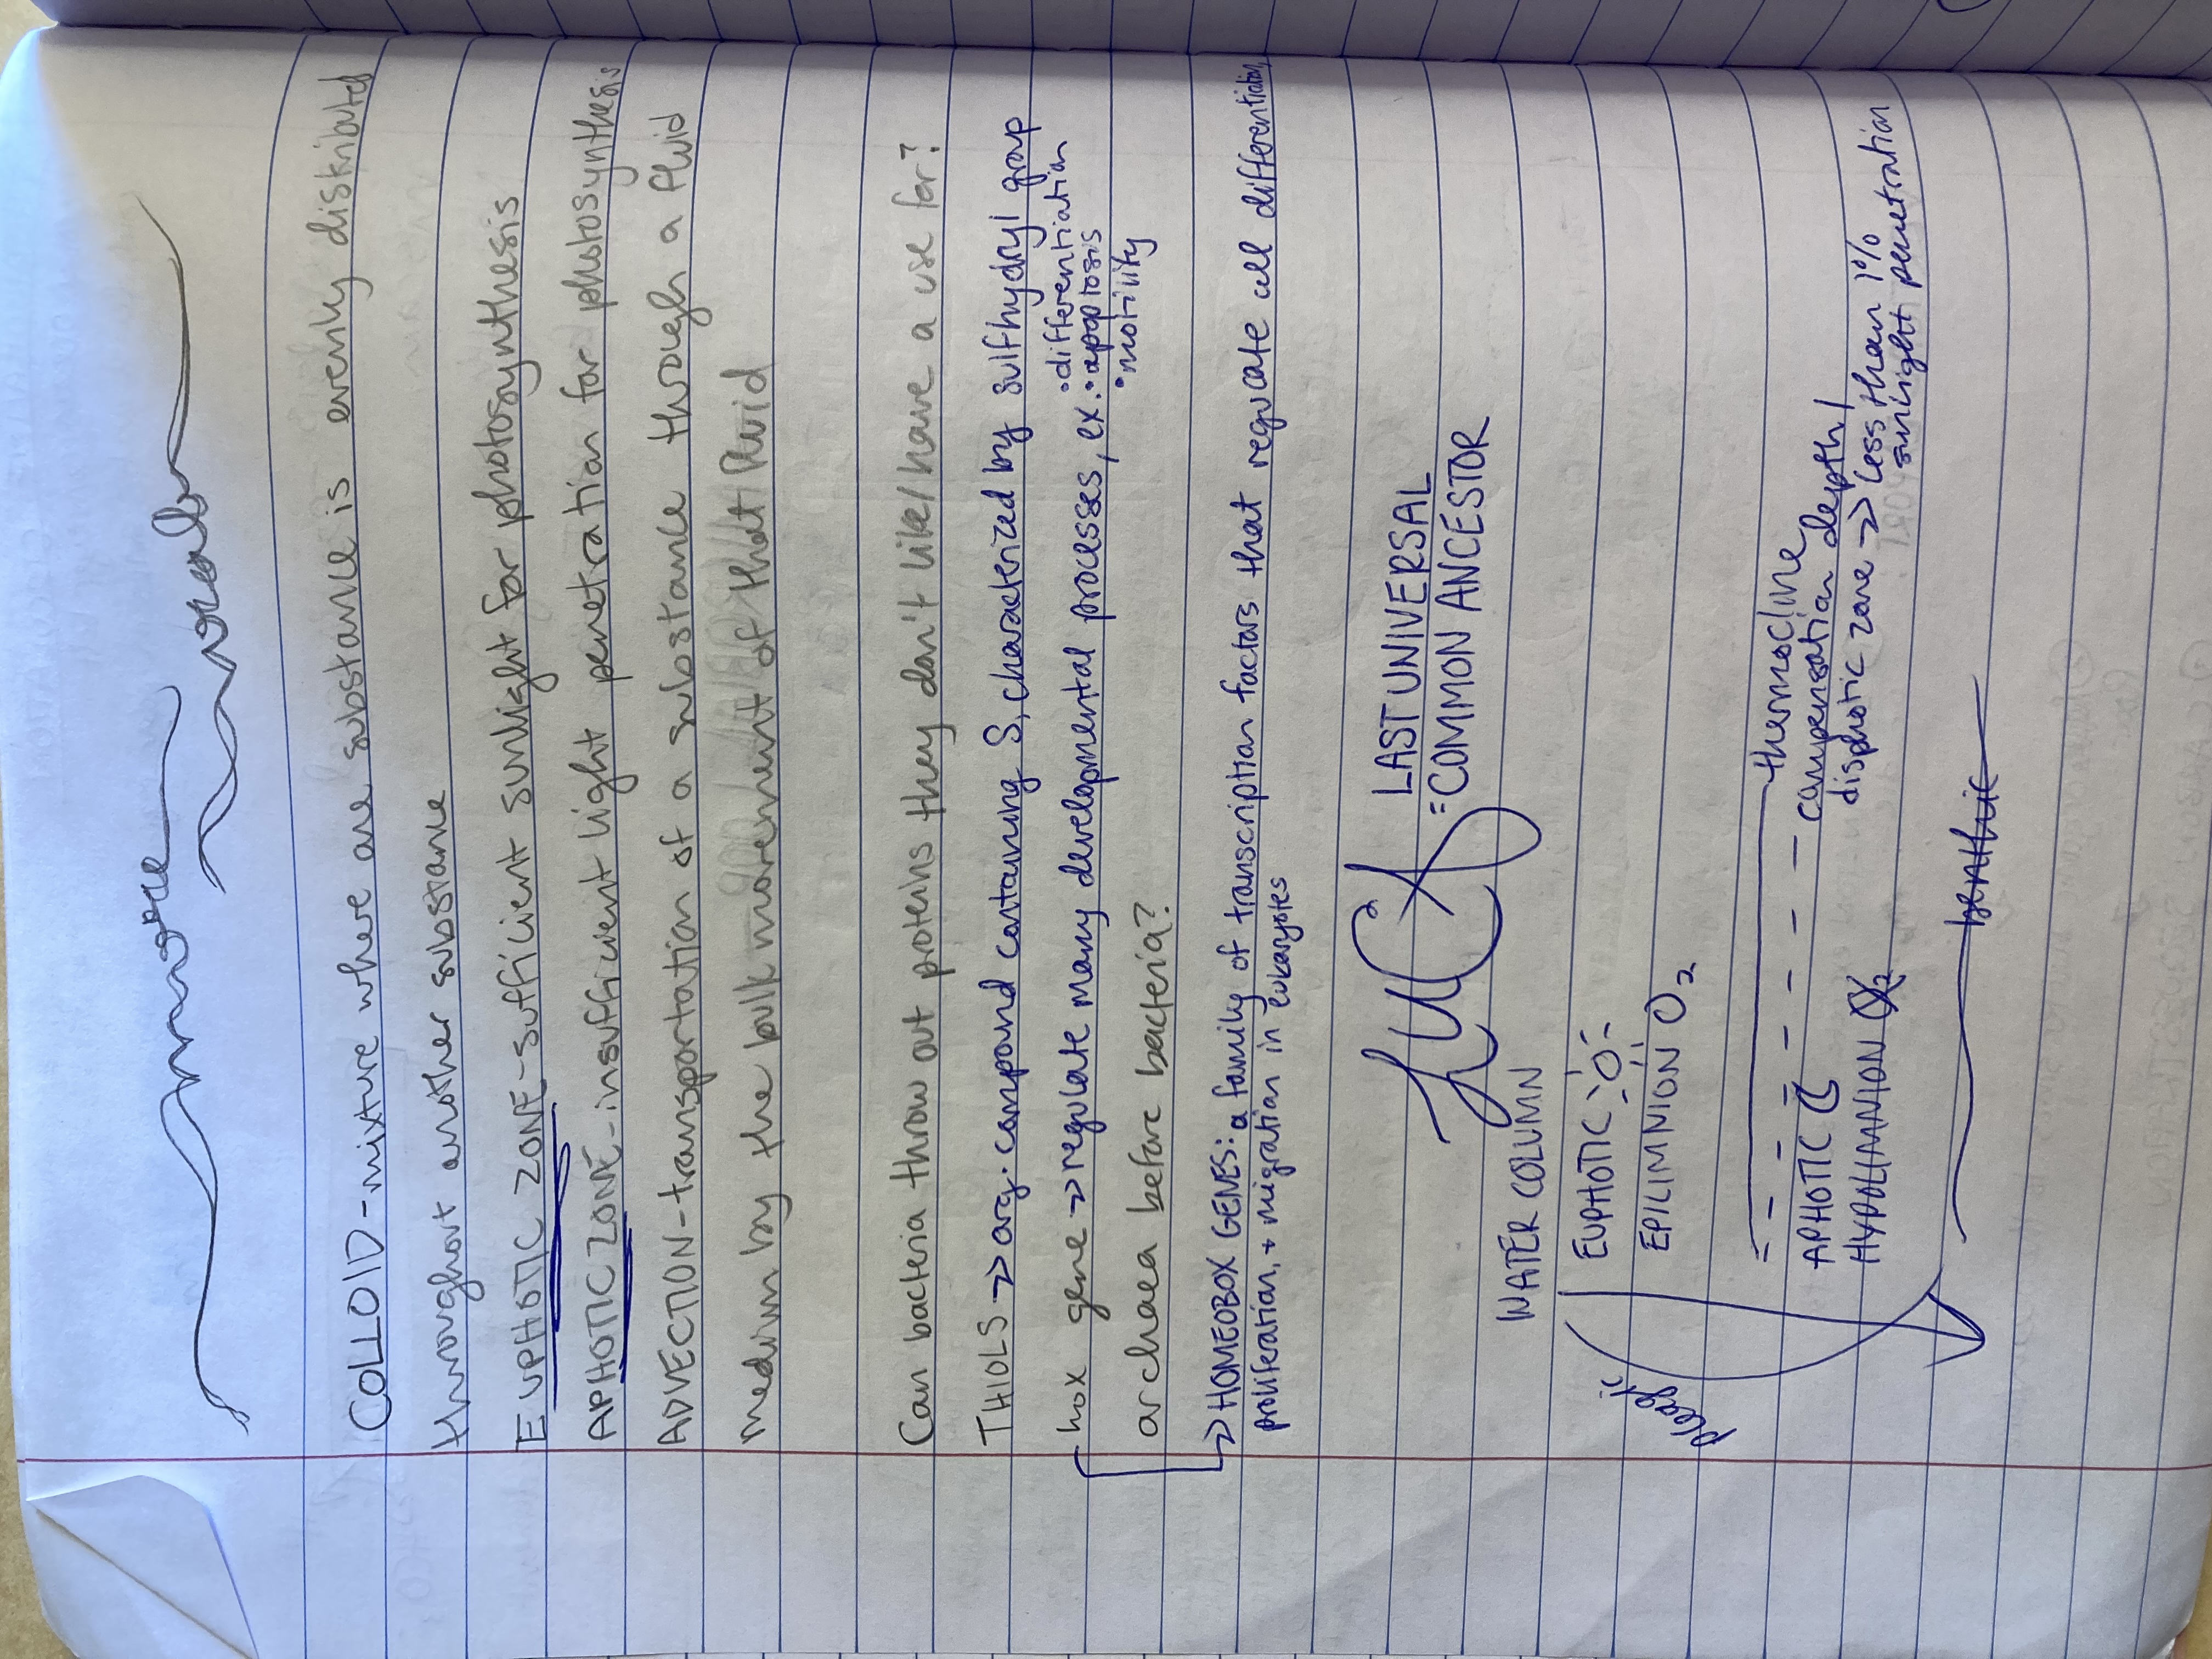 more
vocab
COLLOID-mixture where one substance is evenly distributed
throughout another substance
EUPHOTIC ZONE-sufficient sunlight for photosynthesis
APHOTIC ZONE-insufficient light penetration for photosynthesis
ADVECTION-transportation of a substance through a fluid
medium by the bulk movement of that fluid
Can bacteria throw out proteins they don't like/have a use for?
THIOLS → org. compound containing S, characterized by sulfhydryl group
hox gene → regulate many developmental processes, ex. • differentiation
• apoptosis
• motility
archaea before bacteria?
→ HOMEOBOX GENES: a family of transcription factors that regulate cell differentiation,
proliferation, + migration in eukaryotes
LUCA = LAST UNIVERSAL
COMMON ANCESTOR
WATER COLUMN
pleagic
EUPHOTIC
EPILIMNION O₂
thermocline
APHOTIC
compensation depth/
HYPOLIMNION O₂
disphotic zone → less than 1%
sunlight penetration
benthic